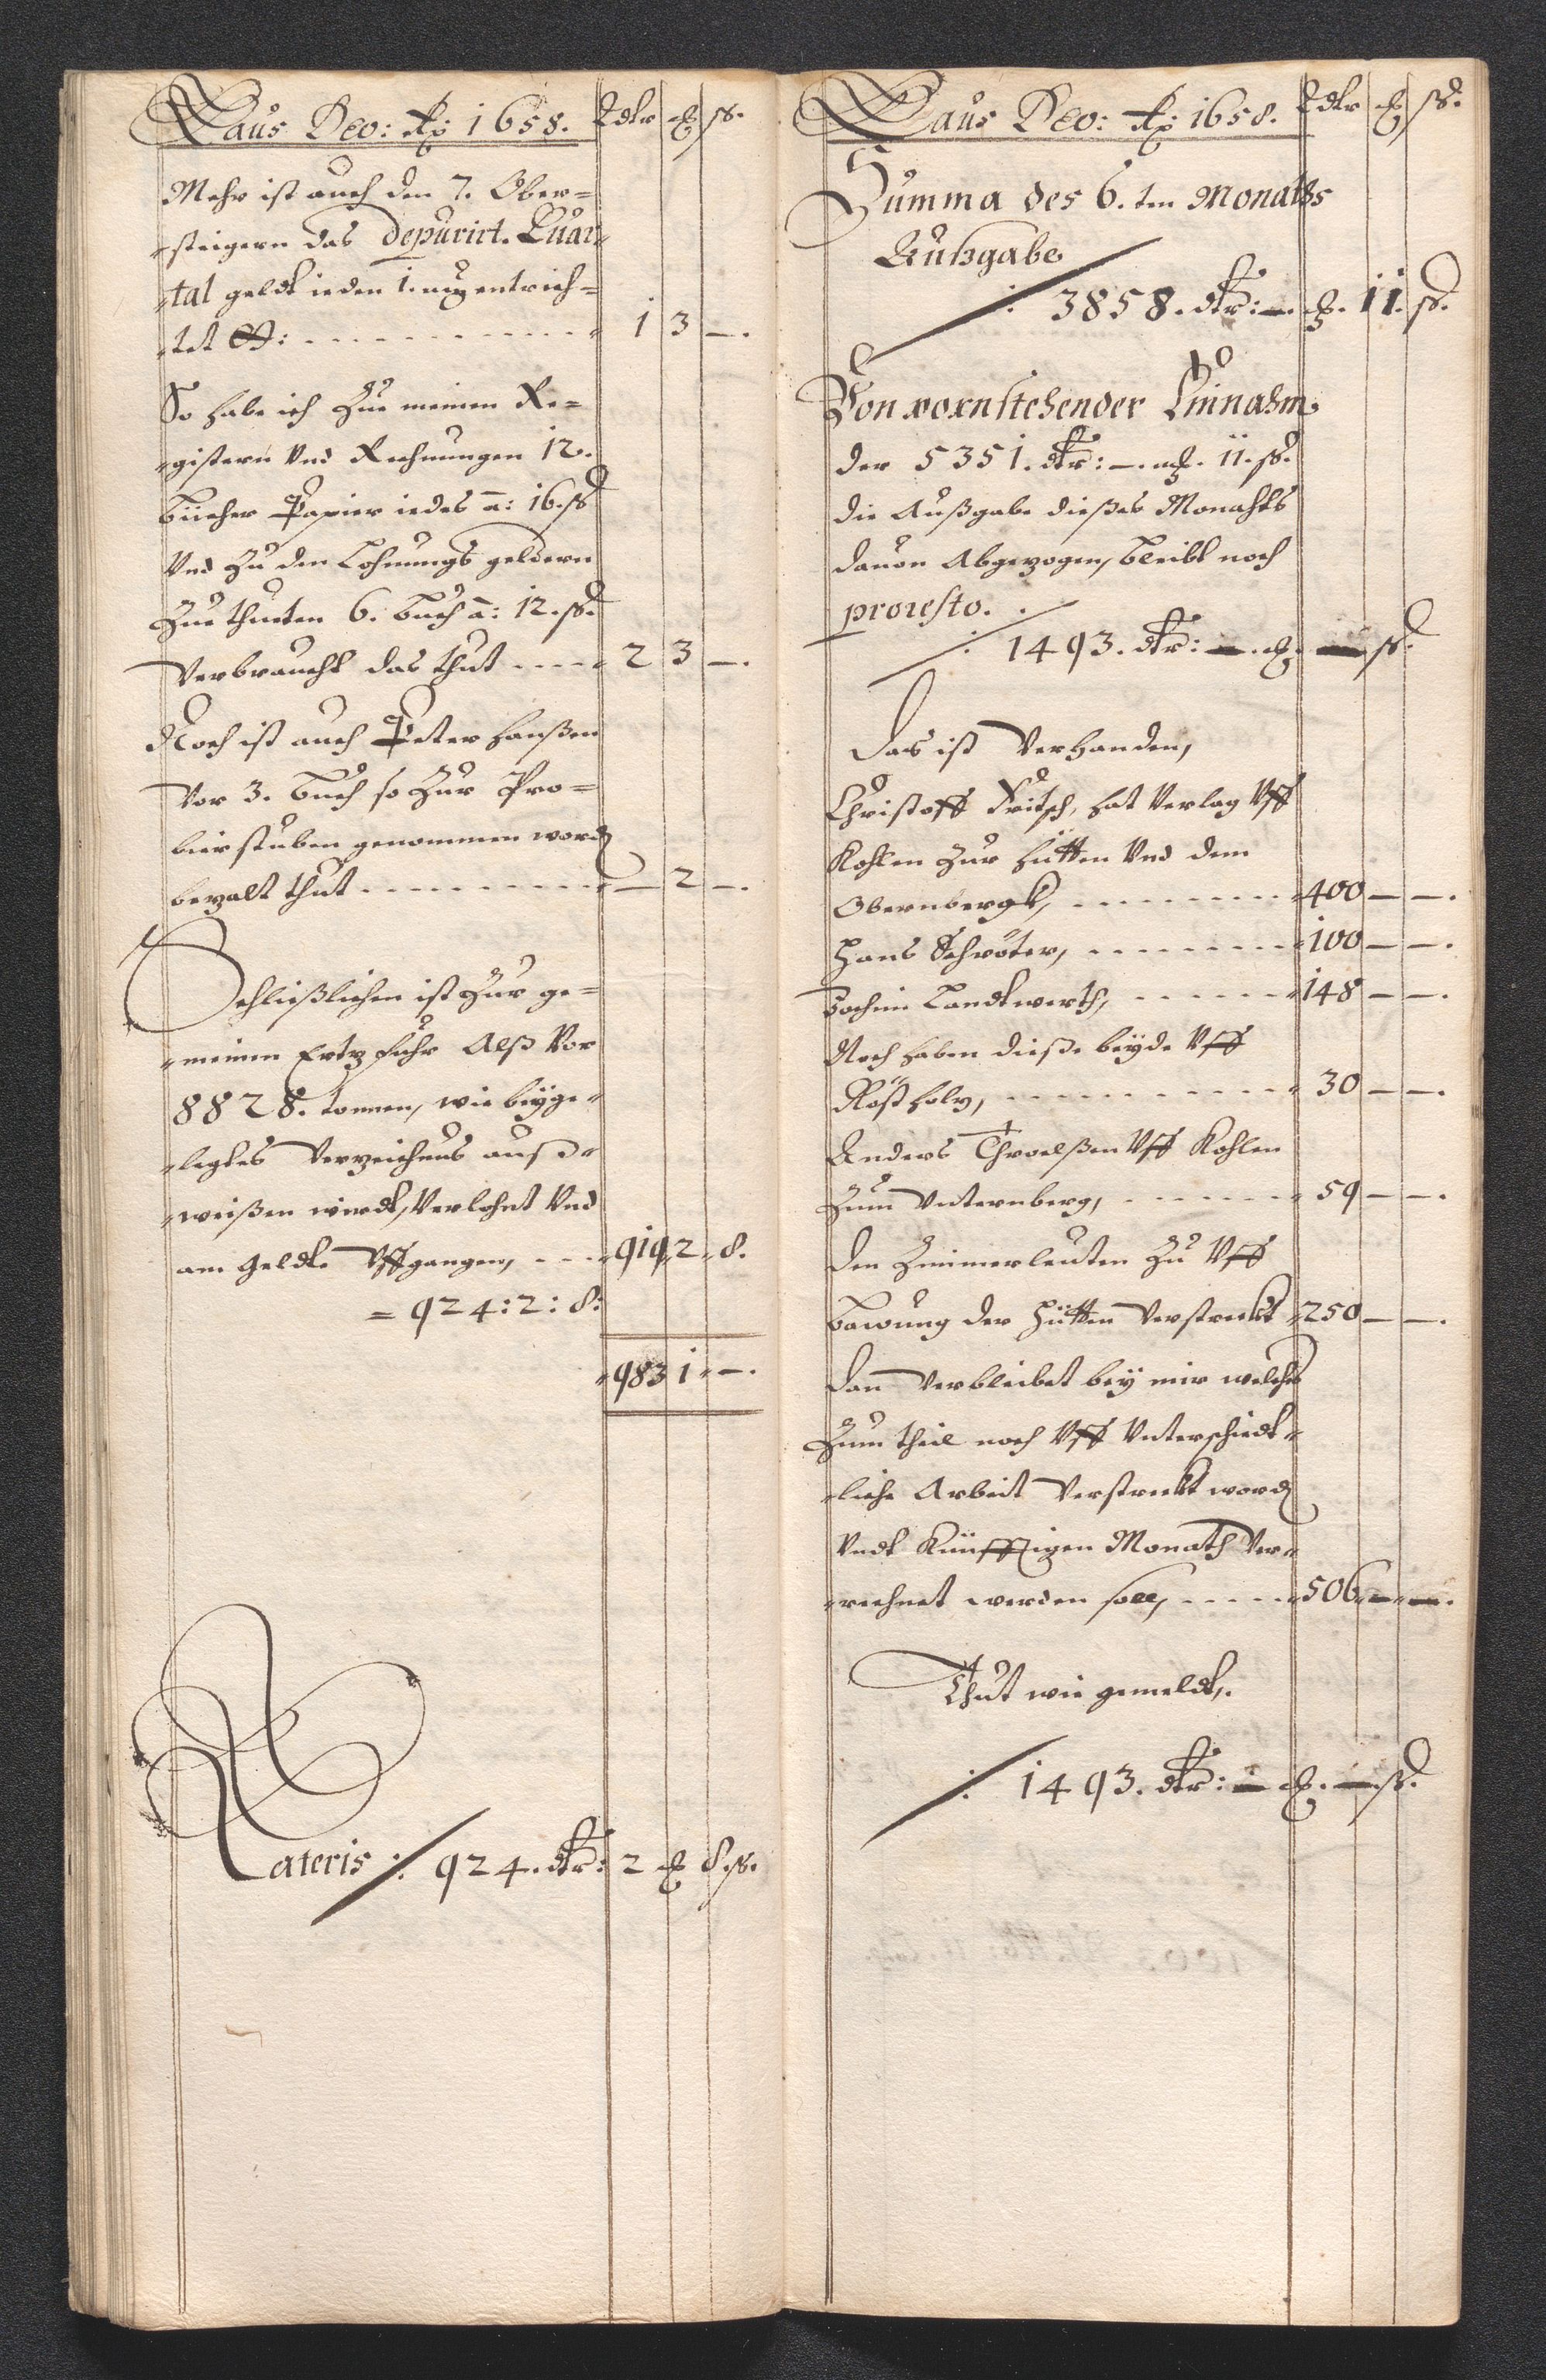 Laus Deo: Ao: 1658. Rdlr mk ß.
Mehr ist auch den 7. Ober=
=steigern das depurirt. Quar=
=tal geldt ieden 1. mk entrich=
=tet ... 1 3 —.
So habe ich Zue meinen Re=
=gistern Vnd Rechnungen 12.
bücher Papier iedes a: 16. ß
Vnd Zu den Lohnungs geldern
Zue thueten 6. buch a: 12. ß.
Verbraucht das thut ---- 2 3 —.
Noch ist auch Peter Hanßen
Vor 3. buch so Zur Pro=
bier stuben genommen word
bezalt thut ---- — 2 —.
Schließlichen ist Zur ge=
=meinen Ertz fuhr Alß Vor
8828. tonnen, wie beyge=
=legtes Verzeichnus auß=
=weißen wirdt, Verlohnt Vnd
am Geldte Vffgangen, --- 919 2 8.
= 924: 2: 8:
983 1 —.
Lateris ./. 924. dlr: 2 mk 8. ß.
Laus Deo: Ao: 1658. Rdlr mk ß.
Summa des 6. ten Monaths
Außgabe
./. 3858. dlr: — mk. 11. ß.
Von vornstehender Einnahm
der 5351. dlr: — mk. 11. ß.
die Außgabe dießes Monahts
dauon Abgezogen, bleibt noch
pro resto.
./. 1493. dlr: — mk. — ß.
Das ist Verhanden,
Christoff Fritsch, hat Verlag Vff
Kohlen Zur hütten Vnd dem
Obernbergk, ---- 400 — —.
Hans Schröter, ---- 100 — —.
Jochim Landtwerth, ---- 148 — —.
Noch haben dieße beyde Vff
Röstholz, ---- 30 — —.
Anders Throelßen Vff Kohlen
Zum Vnternberg, ---- 59 — —.
Den Zimmerleuten Zu Vff
bawung der hütten Verstreckt 250 — —.
Dan Verbleibet bey mir welches
Zum theil noch Vff Vnterschiedt=
=liche Arbeit Verstreckt word
Vndt Künfftigen Monath Ver=
=rechnet werden soll, ---- 506 — —.
Thut wie gemeldt,.
./. 1493. dlr: — mk. — ß.